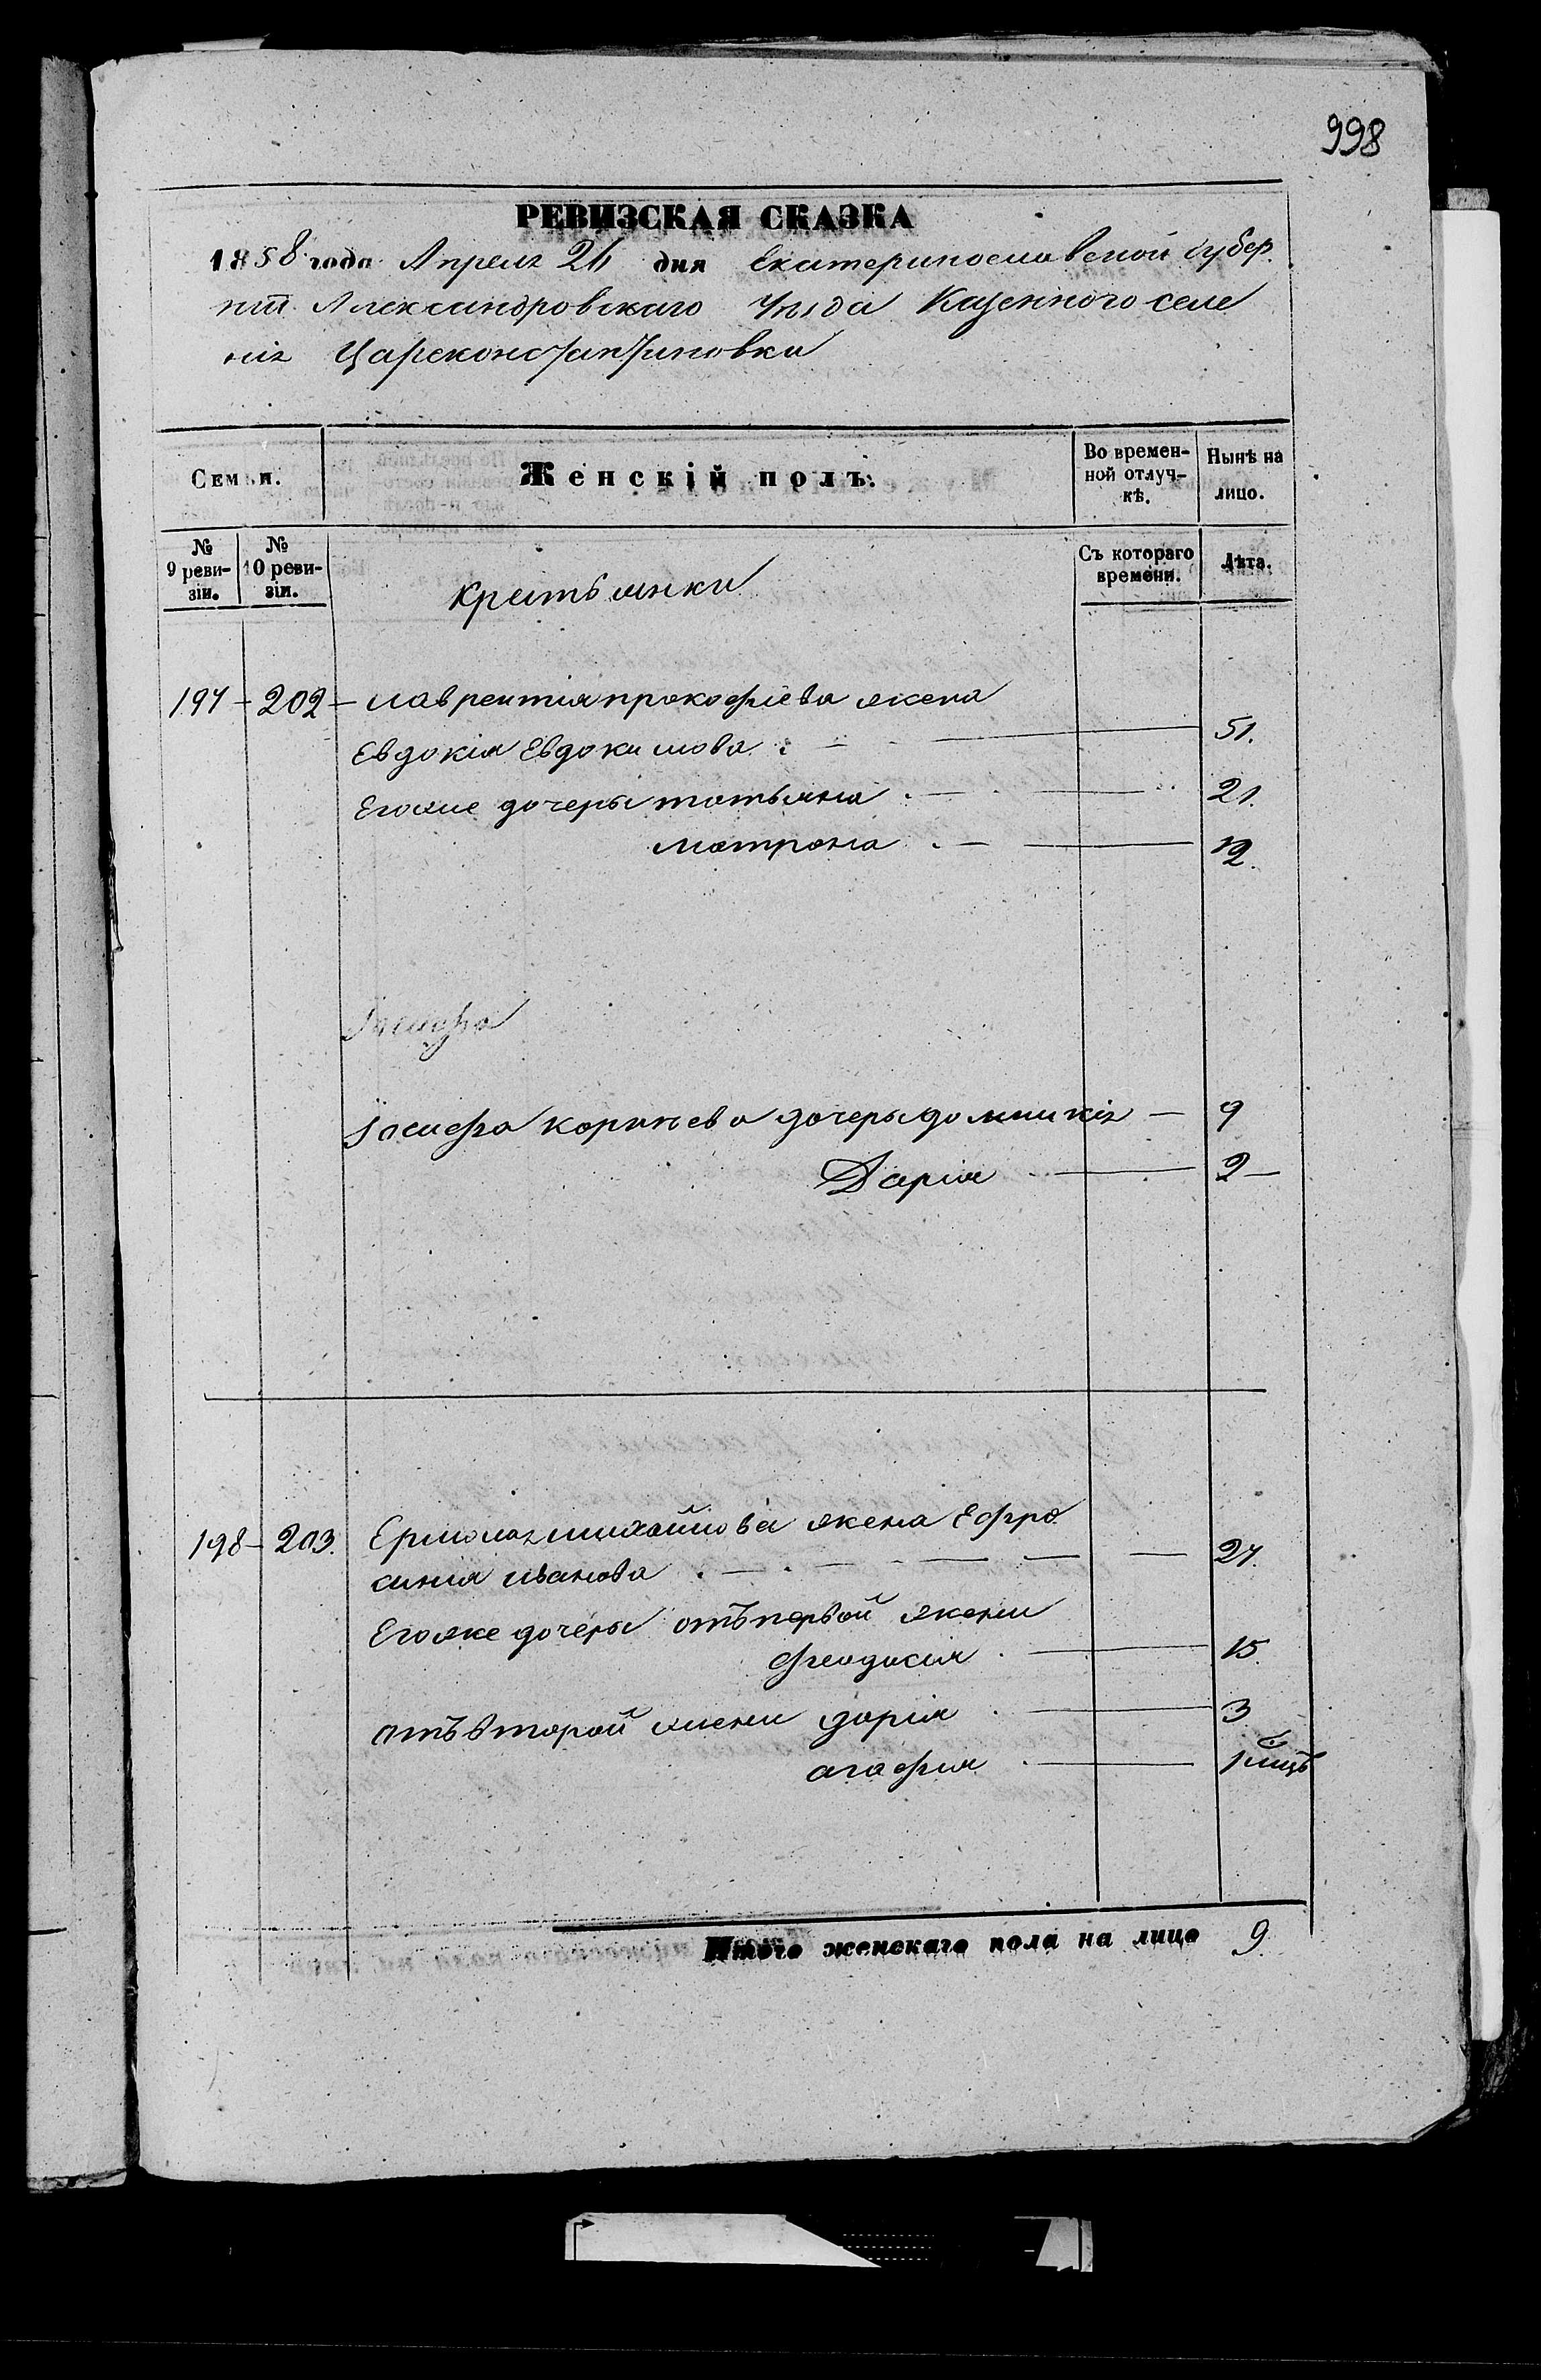 998
РЕВИЗСКАЯ СКАЗКА
1858 года Апреля 24 дня Екатеринославской губер
нии Александровскаго Уезда Казенного селе
нія Цареконстантиновки
Семьи.
Женскій полъ.
Во времен-
ной отлуч-
кѣ.
Нынѣ на
лицо.
№
9 реви-
зіи.
№
10 реви-
зіи.
крестьянки
Съ котораго
времени.
Лѣта.
197 - 202 - лаврентія прокофіева жена
Евдокія Евдокимова 51.
Егоже дочери татьяна 21.
матрона 12.
Іосифа
Іосифа корнѣева дочери домникія - 9
Дарія 2
198 - 203. Ермолая михайлова жена Ефро
синия иванова 27.
Егоже дочери отъ первой жени
феодосия 15.
отъ второй жени дарія 3
агафия 1 мцъ
Итого женскаго пола на лицо 9